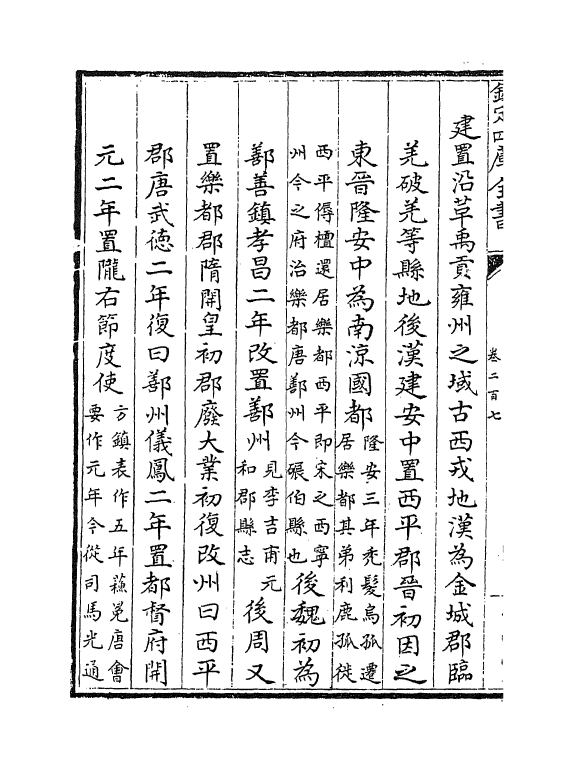 欽定四庫全書
卷二百七
建置沿革禹貢雍州之域古西戎地漢為金城郡臨
羌破羌等縣地後漢建安中置西平郡晉初因之
東晉隆安中為南涼國都
隆安三年禿髮烏孤遷
居樂都其弟利鹿孤徙
西平傉檀還居樂都西平即宋之西寧
州今之府治樂都唐鄯州今碾伯縣也
後魏初為
鄯善鎮孝昌二年改置鄯州
見李吉甫元
和郡縣志
後周又
置樂都郡隋開皇初郡廢大業初復改州曰西平
郡唐武德二年復曰鄯州儀鳳二年置都督府開
元二年置隴右節度使
方鎮表作五年蘓冕唐會
要作元年今從司馬光通